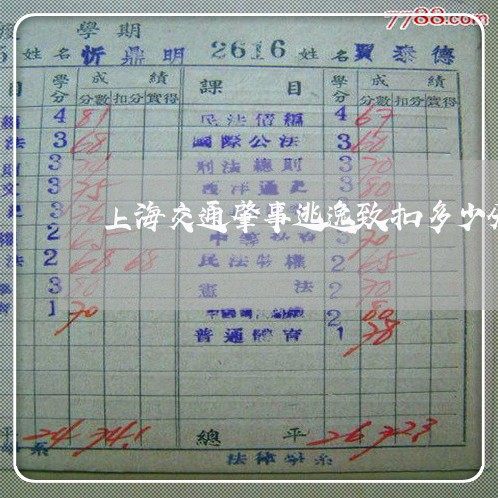 7788.com
學期
姓名 忻鼎明 2616 姓名 賈泰德
目 學分 成績 課目 學分 成績
分數 扣分 實得 分數 扣分 實得
4 81 民法債編 4 67
法 3 68 國際公法 3 60
3 刑法總則 3 70
3 75 西洋通史 3 80
3 76
上海交通肇事逃逸致扣多少分
2 65 70
法 2 68 68 民法物權 2 65
3 80 憲法 2 70
1 70 2 80
普通體育 1 78
平 24 74.1 總平 26 72.3
系 法律學系